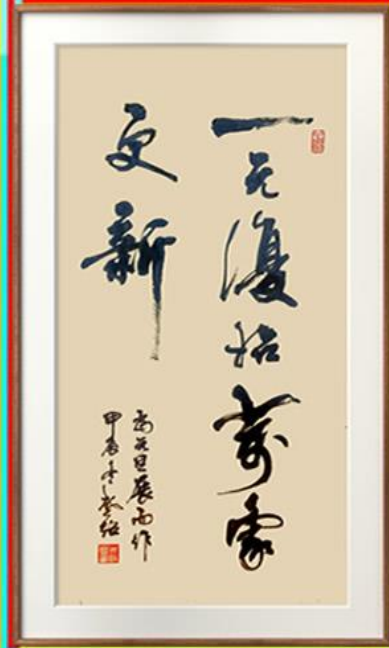 一元復始萬象
更新
為元旦展而作
甲辰冬